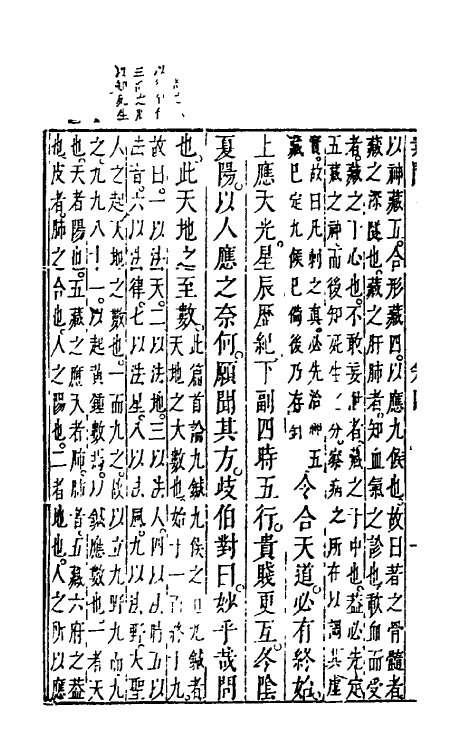 以神藏五合形藏四以應九候也故曰著之骨髓者
藏之深隧也藏之肝肺者知血氣之診也歃血而受
者藏之于心也不敢妄泄者藏之于中也葢必先定
五藏之神而後知死生之分察病之所在以調其虛
實故曰凡刺之真必先治神五
藏已定九候已備後乃存針
令合天道必有終始
上應天光星辰歷紀下副四時五行貴賤更互冬陰
夏陽以人應之奈何願聞其方歧伯對曰妙乎哉問
也此天地之至數
此篇首論九鍼九候之九鍼者
天地之大數也始于一而終于九
故曰一以法天二以法地三以法人四以法時五以
法音六以法律七以法星八以法風九以法野夫聖
人之起天地之數也一而九之故以立九野九而九
之九九八十一以起黃鐘數焉以鍼應數也一者天
也天者陽也五藏之應天者肺肺者五藏六府之葢
也皮者肺之合也人之陽也二者地也人之所以應